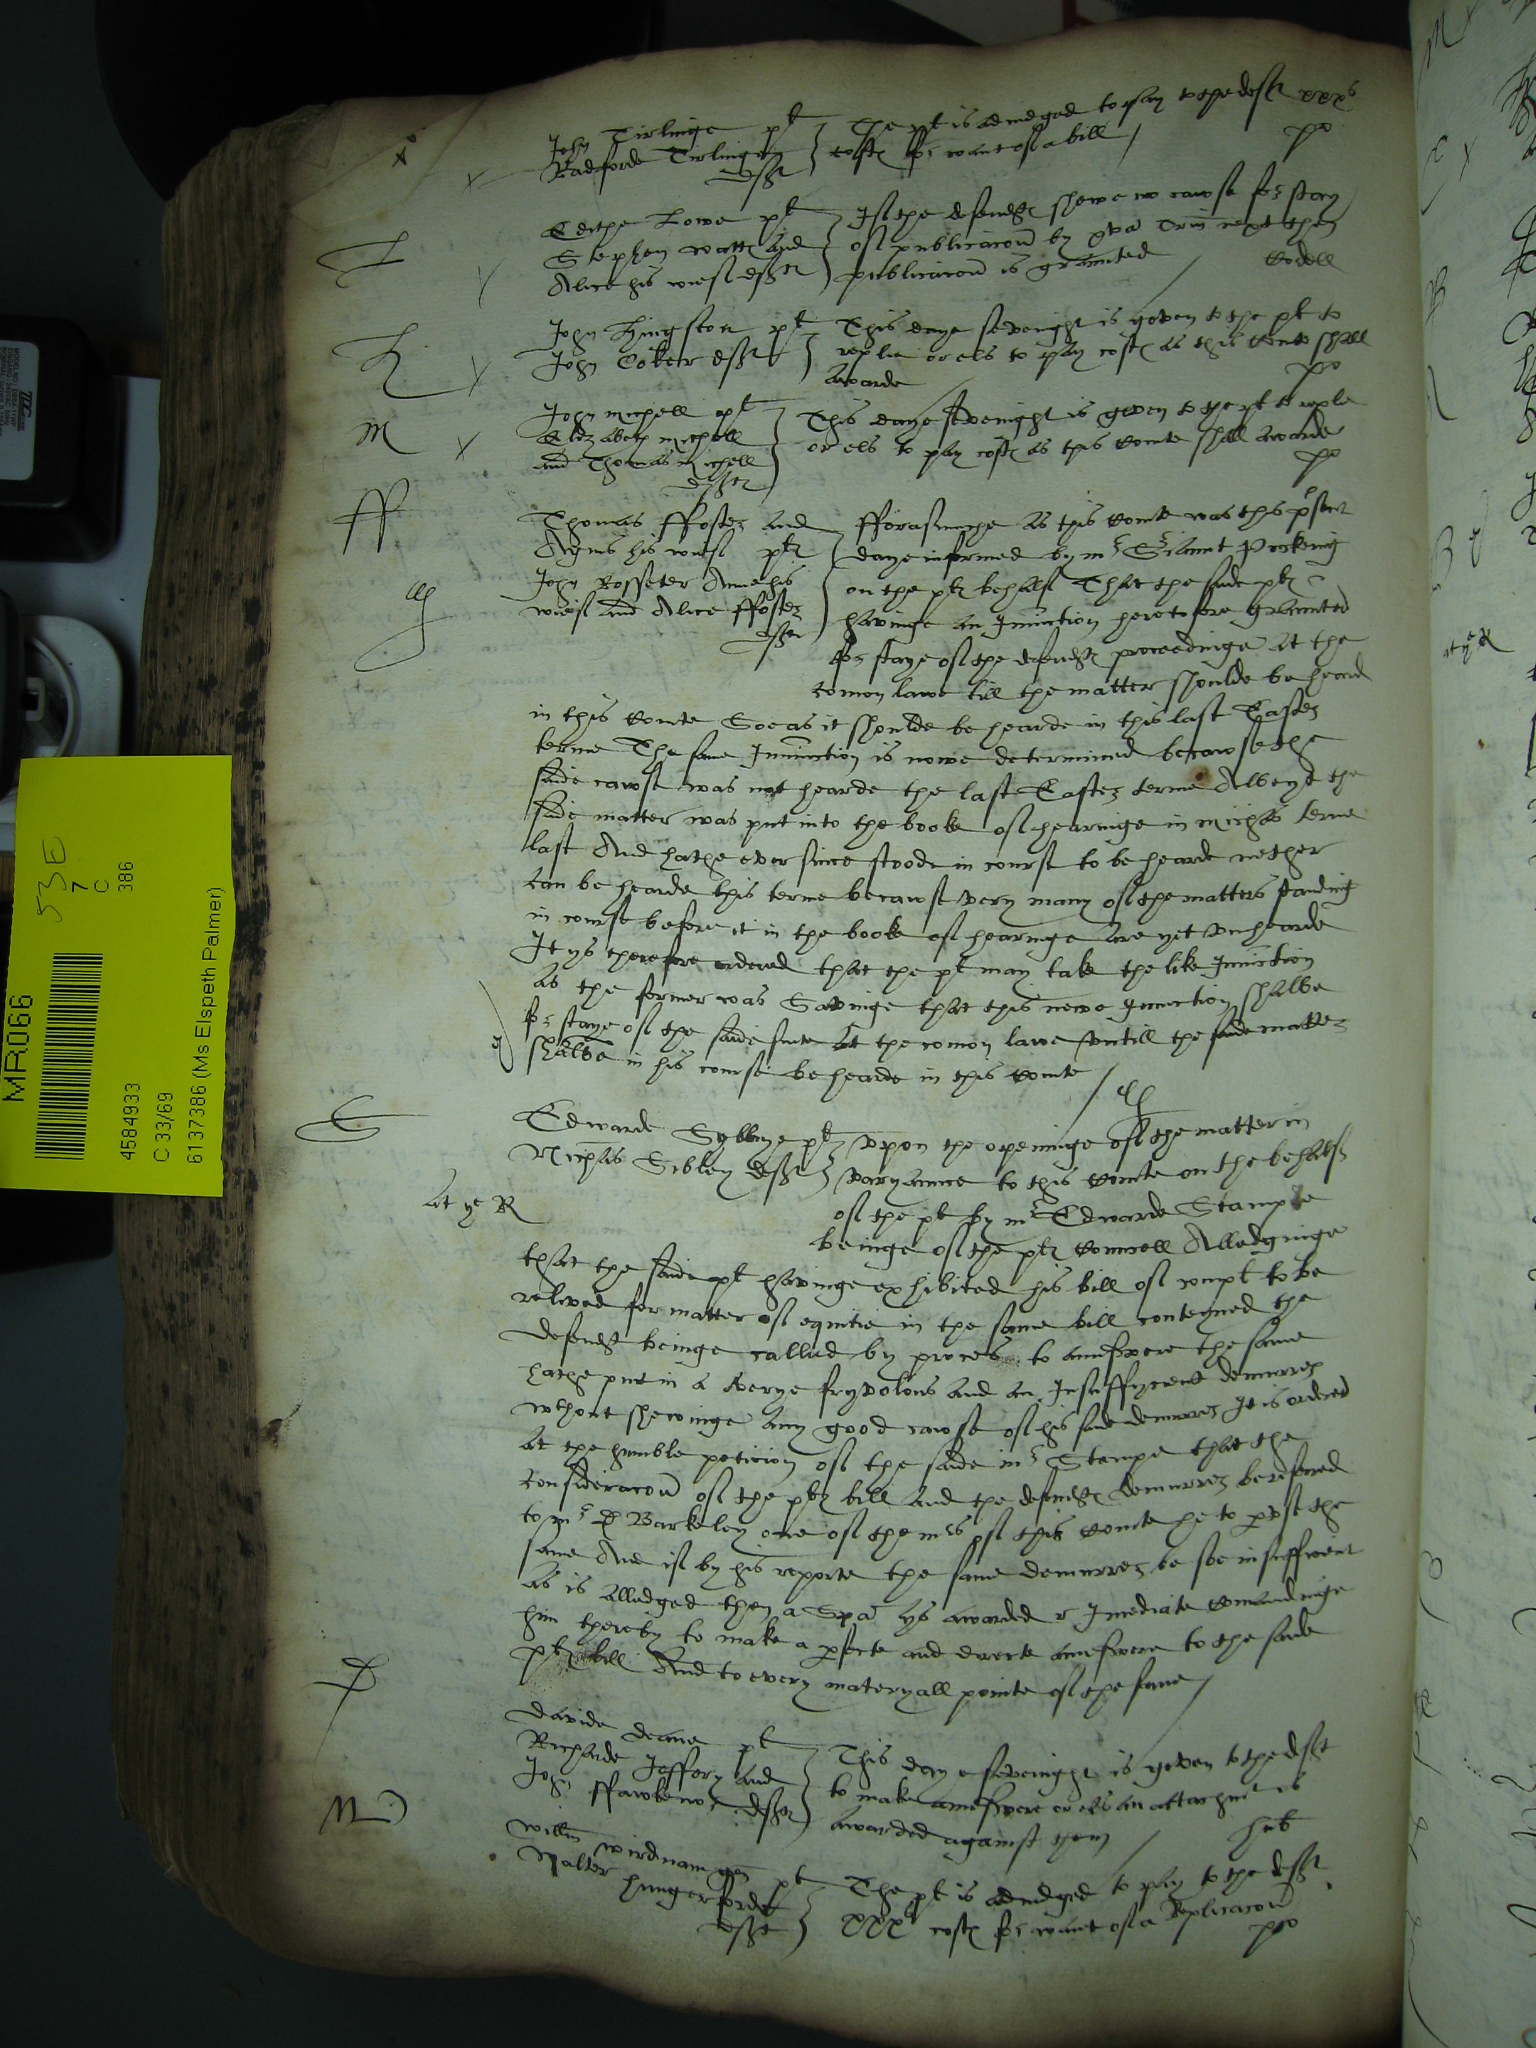 John Tirlinge plt } The plt is adiudged to pay to the deft xxxs
Radforde Tirlinge deft } costs for want of a bill
po
L
Edithe Lowe plt
Stephen watts and
Alice his wief defts
If the defendts shewe no cawse for stay
of publicacon by xva Trin next then
publicacon is graunted
K
John Kyngston plt
John Coker deft
This daye sevenight is geven to the plt to
replie or els to pay costs as this Courte shall
awarde
po
M
John Michell plt
Elizabeth Michell
and Thomas Michell
defts
This daye sevenight is geven to the plt to replie
or els to pay costs as this Courte shall awarde
po
ff
Thomas ffoster and
Agnes his wief plts
John Rosseter Anne his
wief and Alice ffoster
defts
fforasmuche as this Courte was this present
daye informed by mr Seriaunt Puckering
on the plts behalf That the said plts
havinge an Iniunction heretofore graunted
for staye of the defendts proceedinge at the
comon lawe till the matter shoulde be heard
in this Courte Soe as it shoulde be hearde in this last Easter
terme The same Iniunction is nowe determined becawse the
saide cawse was not hearde the last Easter terme Albeyt the
saide matter was put into the booke of hearinge in Michas terme
last And hathe ever since stoode in course to be hearde nether
can be hearde this terme becawse very many of the matters standing
in course before it in the booke of hearinge are yet unhearde
It ys therefore ordered that the plt may take the like Iniunction
as the former was Savinge that this newe Iniunction shalbe
for staye of the saide suite at the comon lawe untill the saide matter
shalbe in his course be hearde in this Courte
S
Edwarde Syblye plt
Nichas Sibley deft
At ye R
Upon the openinge of the matter in
varyaunce to this Courte on the behalf
of the plt by mr Edwarde Stampe
beinge of the plts Counsell Alledginge
that the saide plt havinge exhibited his bill of complt to be
relived for matter of equitie in the same bill conteyned the
defendt beinge called by proces to aunswere the same
hathe put in a verye fryvolous and an Insuffycient demurrer
wthout shewinge any good cawse of his saide demurrer It is ordered
at the humble peticion of the saide mr Stampe that the
consideracon of the plts bill and the defendts demurrer be referred
to mr D Barkeley one of the mrs of this Courte he to peruse the
same And if by his reporte the same demurrer be soe insufficient
as is alledged then a Spa ys awarded r Imediate Comaundinge
him thereby to make a perfecte and directe aunswere to the saide
plts bill And to every materyall pointe of the same
D
Davide Deane plt
Richarde Jeffery and
John ffawkener defts
This day sevenight is geven to the deft
to make aunswere or els an attachmt is
awarded against them
W
Willm Wirdnam gen plt
Walter hungerforde
deft
The plt is adiudged to pay to the deft
xxxs costs for want of a Replicacon
po
MR066
53E
7
C
386
4584933
C 33/69
6137386 (Ms Elspeth Palmer)